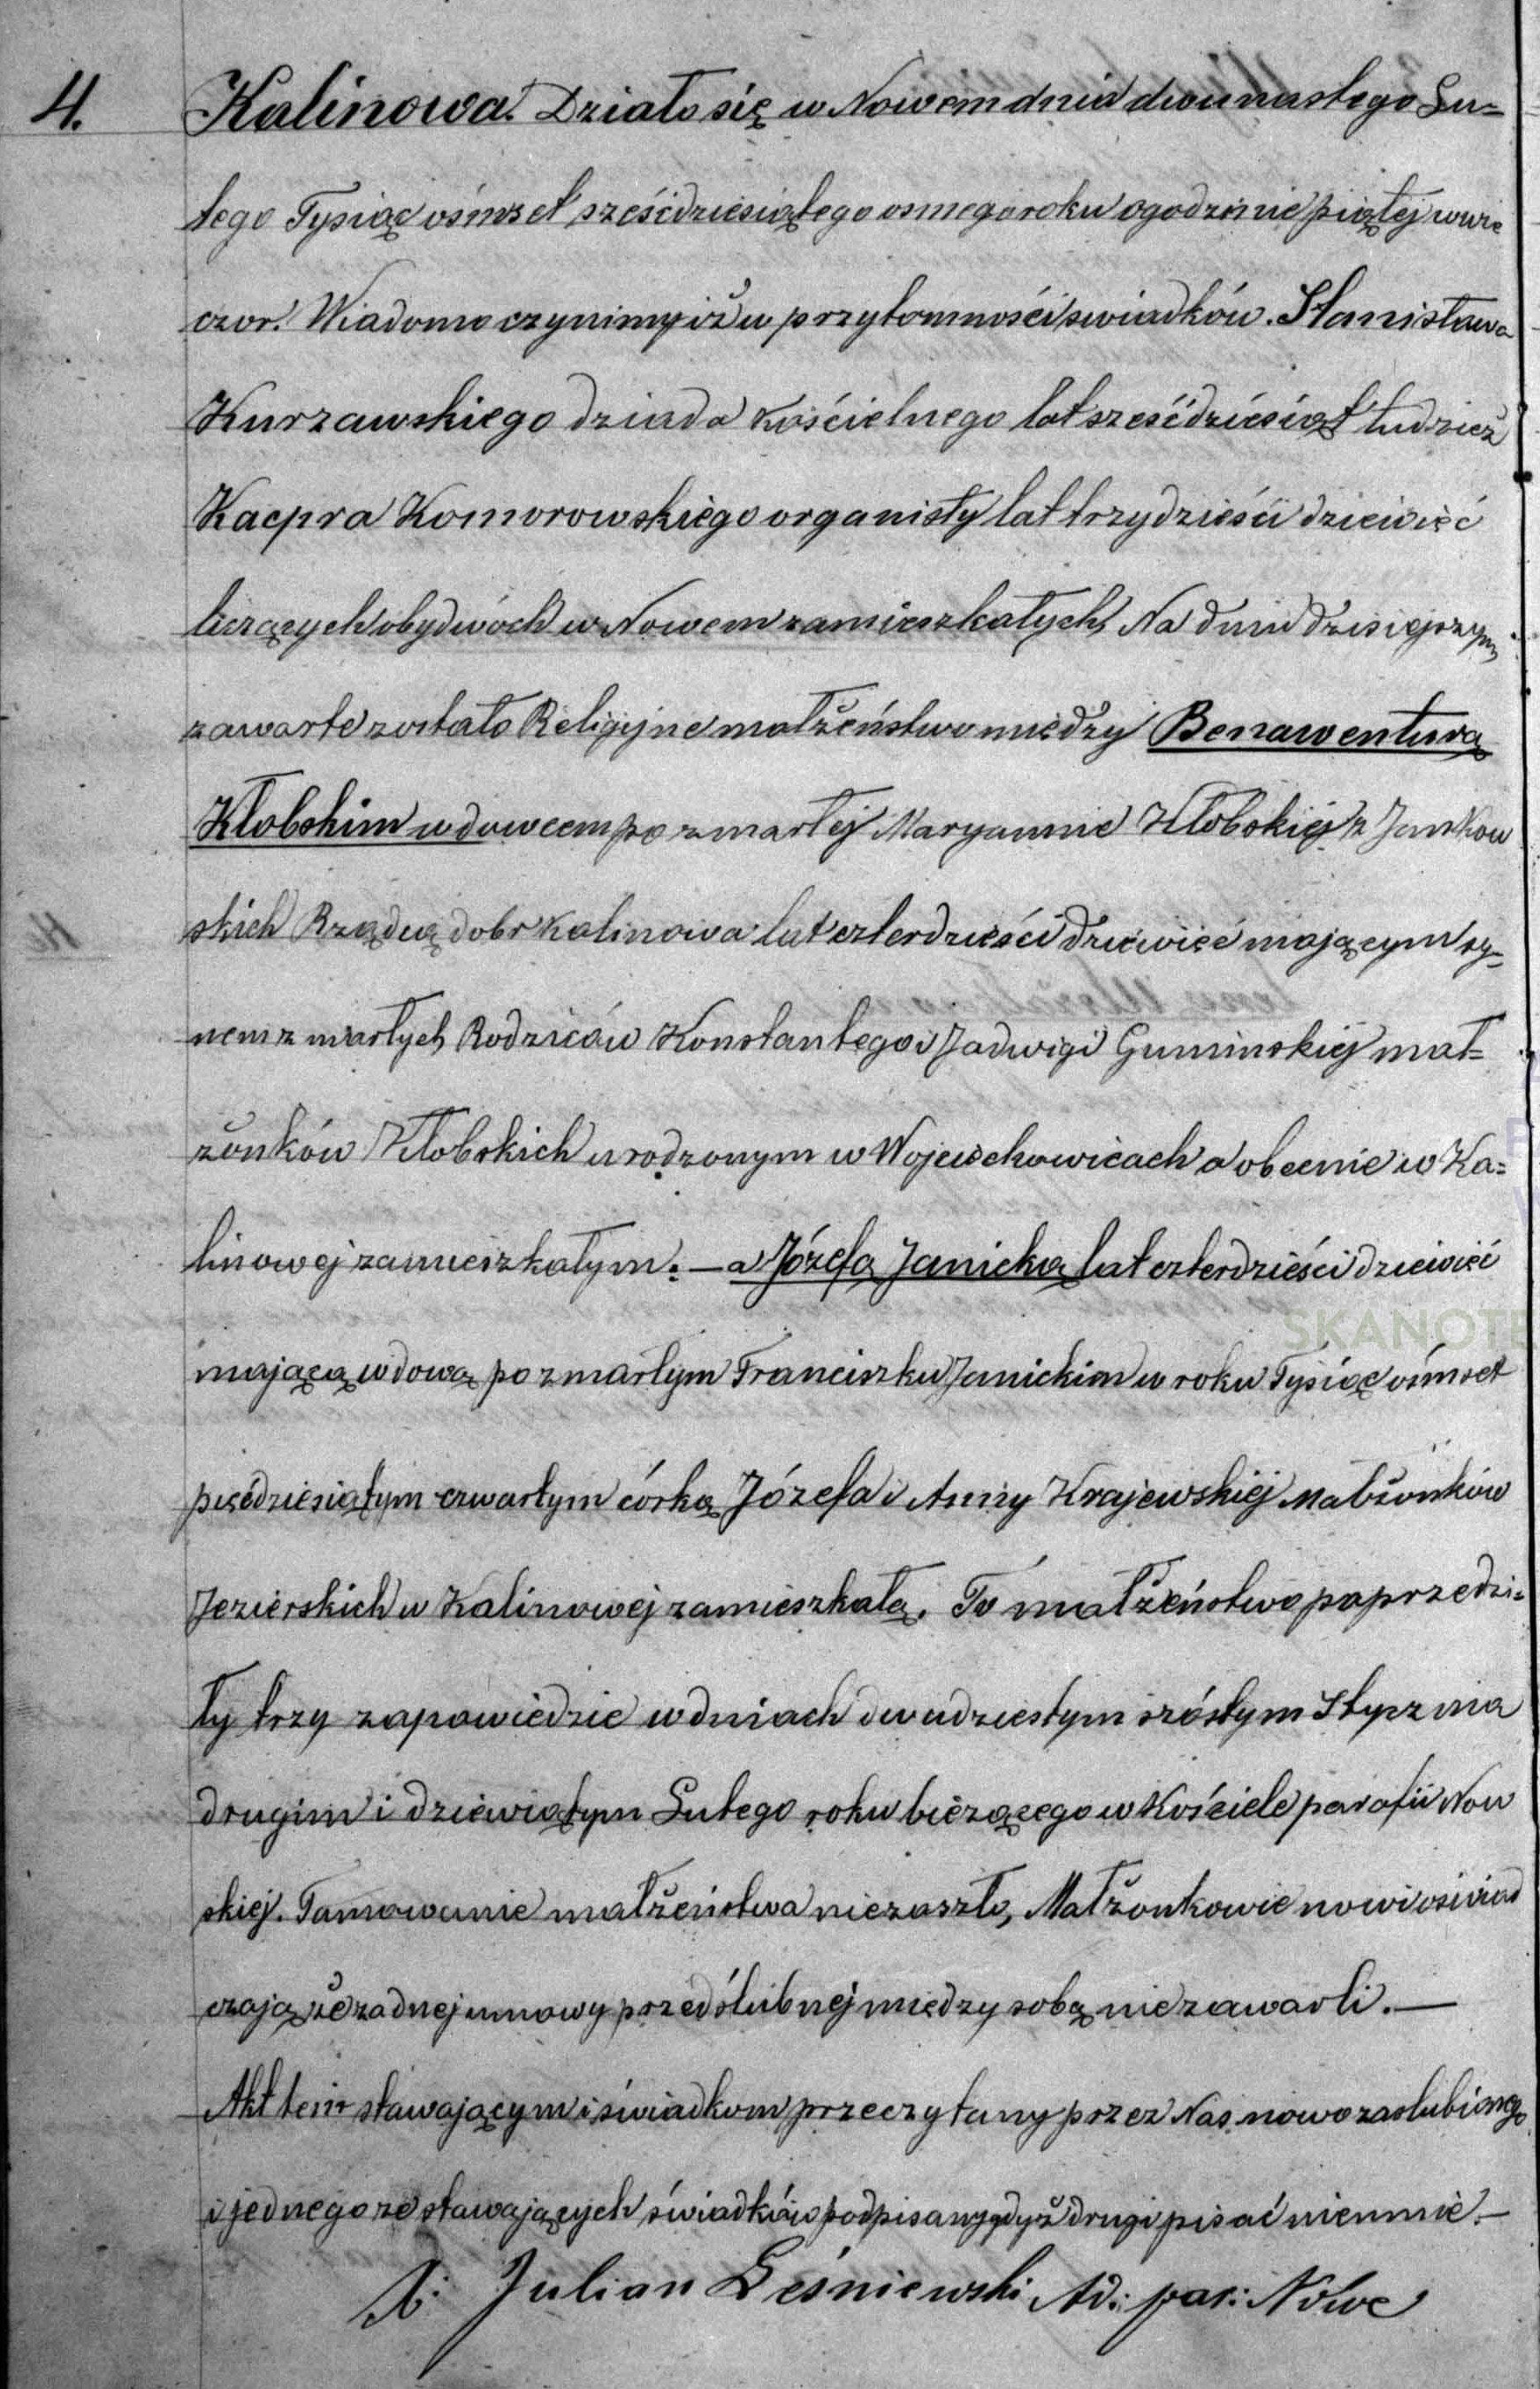 4. Kalinowa. Działo się w Nowem dnia dwunastego Lu=
tego Tysiąc ośmset sześćdziesiątego osmego roku o godzinie piątej wwie
czor. Wiadomo czynimy iż w przytomności swiadków. Stanisława
Kurzawskiego dziada kościelnego lat sześćdziesiąt tudzież
Kacpra Komorowskiego organisty lat trzydzieści dziewięć
liczących obydwóch w Nowem zamieszkałych, Na dniu dzisiejszym
zawarte zostało Religijne małżeństwo między Benawenturą
Kłobskim wdowcem po zmarłej Maryannie Kłobskiej z Jankow
skich Rządcą dobr Kalinowa lat czterdzieści dziewięć mającym sy=
nem zmarłych Rodziców Konstantego i Jadwigi Guminskiej mał=
żonków Kłobskich urodzonym w Wojciechowicach a obecnie w Ka=
linowej zamieszkałym. — a Józefą Janicką lat czterdzieści dziewięć
mającą wdową po zmarłym Franciszku Janickim w roku Tysiąc ośmset
pięćdziesiątym czwartym córką Józefa i Anny Krajewskiej Małżonków
Jezierskich w Kalinowej zamieszkałą. To małżeństwo poprzedzi=
ły trzy zapowiedzie w dniach dwudziestym szóstym Stycznia
drugim i dziewiątym Lutego roku bieżącego w Kościele parafii Now
skiej. Tamowanie małżeństwa niezaszło, Małżonkowie nowi oświad
czają że żadnej umowy przedślubnej między sobą niezawarli. —
Akt ten stawającym i świadkom przeczytany przez Nas nowozaslubionego
i jednego ze stawających świadków podpisany gdyż drugi pisać nieumie. —
X: Julian Leśniewski Ad: par: Nówe
SKANOTE